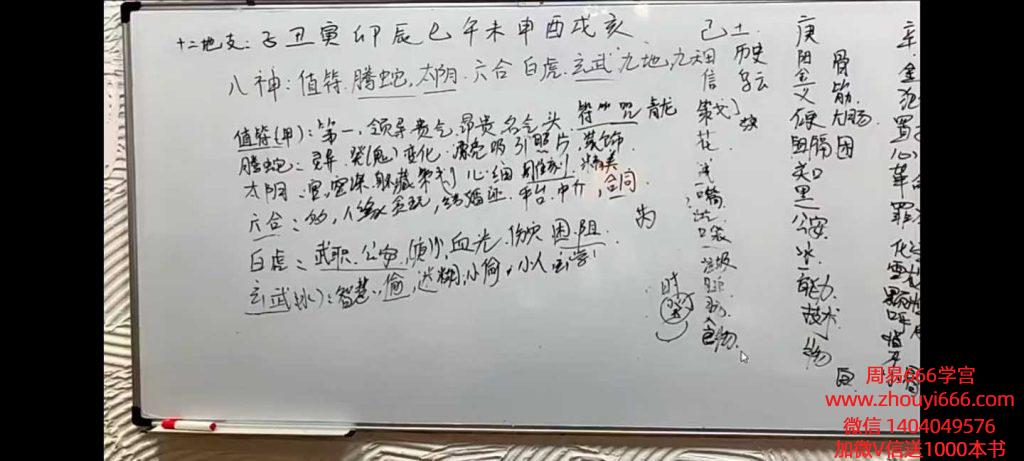 十二地支:子丑寅卯辰巳午未申酉戌亥
八神:值符.腾蛇,太阴.六合白虎.玄武九地,九天
值符(甲):第一,领导贵气,昂贵名气头.符 咒青龙
腾蛇:灵异.癸(鬼)变化.漂亮吸引照片.装饰
太阴:密,密谋.躲藏策划心细雕刻.精美
六合:多,人缘贪玩,结婚证.平台.中介,合同
白虎:武职.公安,血光.伤灾困.阻.
玄武(水):智慧,偷,迷糊,小偷.小人玄学
为
时
己土
信
策划
花
嘴
垃圾
食物
历史
庚
阳金
义
硬
阻隔
知
黑
公安
冰
能力
技术
骨
筋
大肠
困
辛
金
犯
置
心
革
罪
化
雪
颗
呼
周易666学宫
www.zhouyi666.com
微信 1404049576
加微V信送1000本书